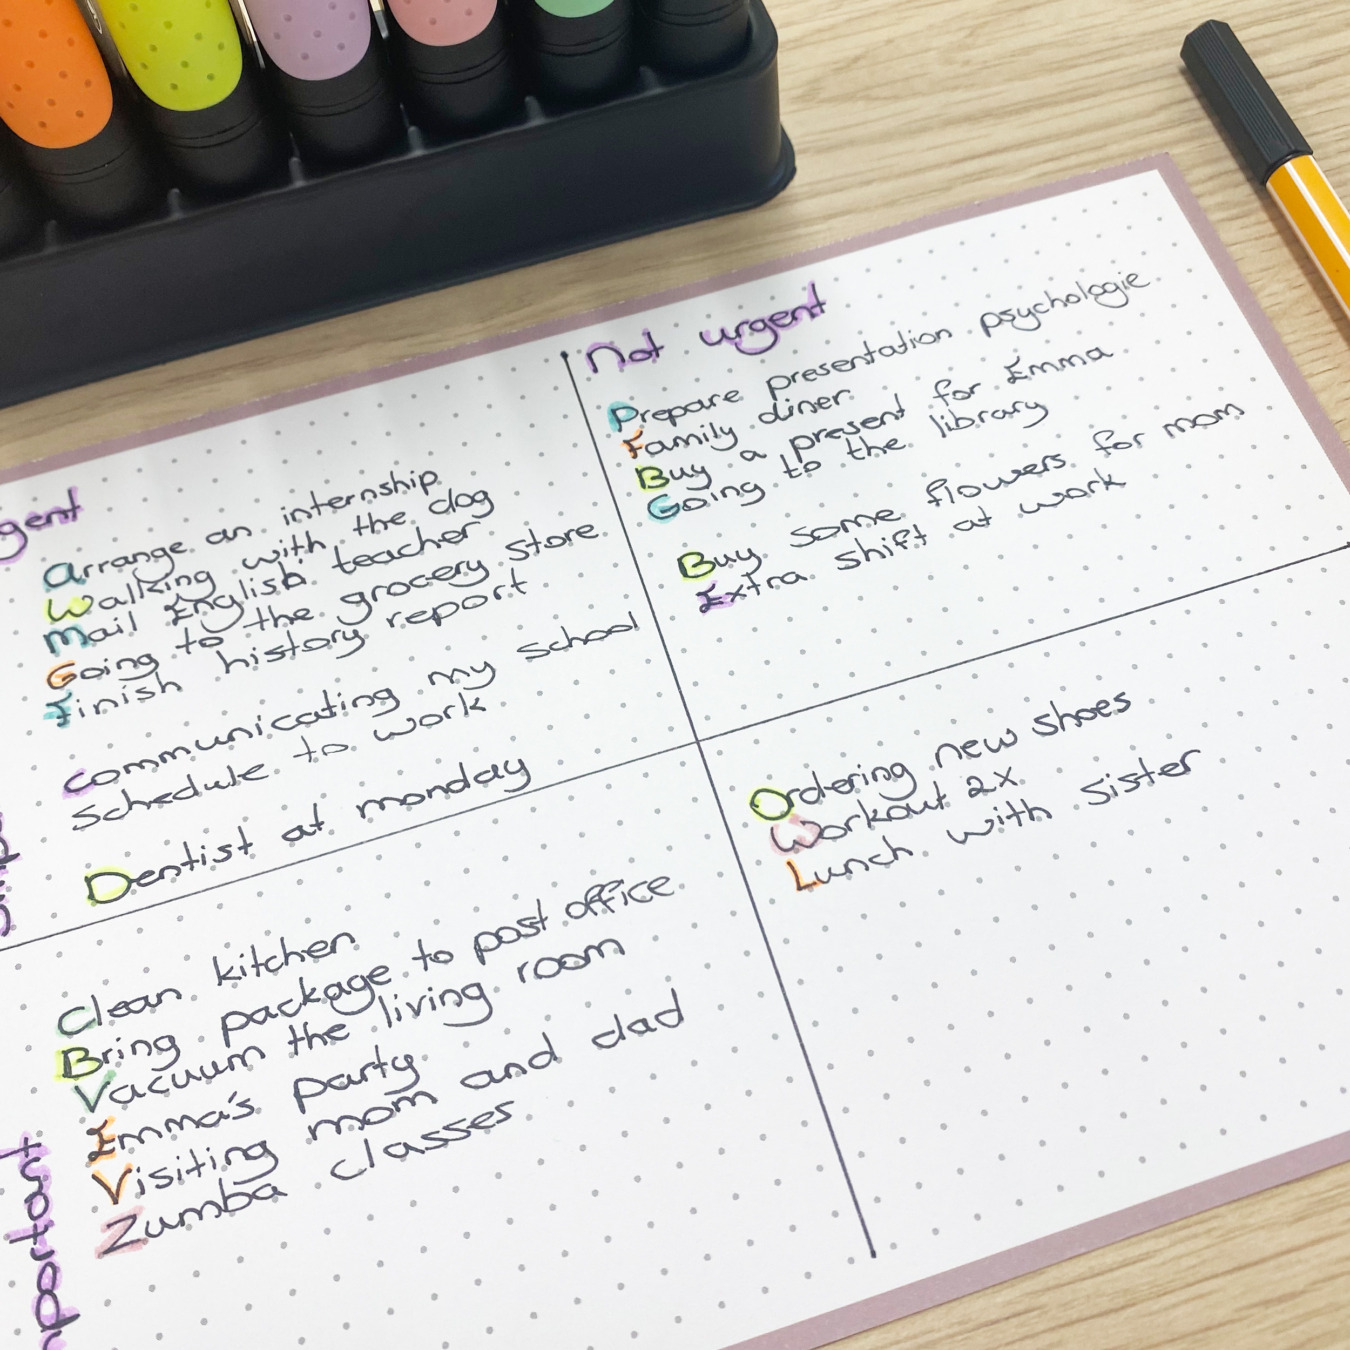 Not urgent
Prepare presentation psychologie
Family diner
Buy a present for Emma
Going to the library
Buy some flowers for mom
Extra shift at work
gent
Arrange an internship
Walking with the dog
Mail English teacher
Going to the grocery store
Finish history report
Communicating my school
schedule to work
Dentist at monday
Ordering new shoes
Workout 2x
Lunch with sister
Clean kitchen
Bring package to post office
Vacuum the living room
Emma's party
Visiting mom and dad
Zumba classes